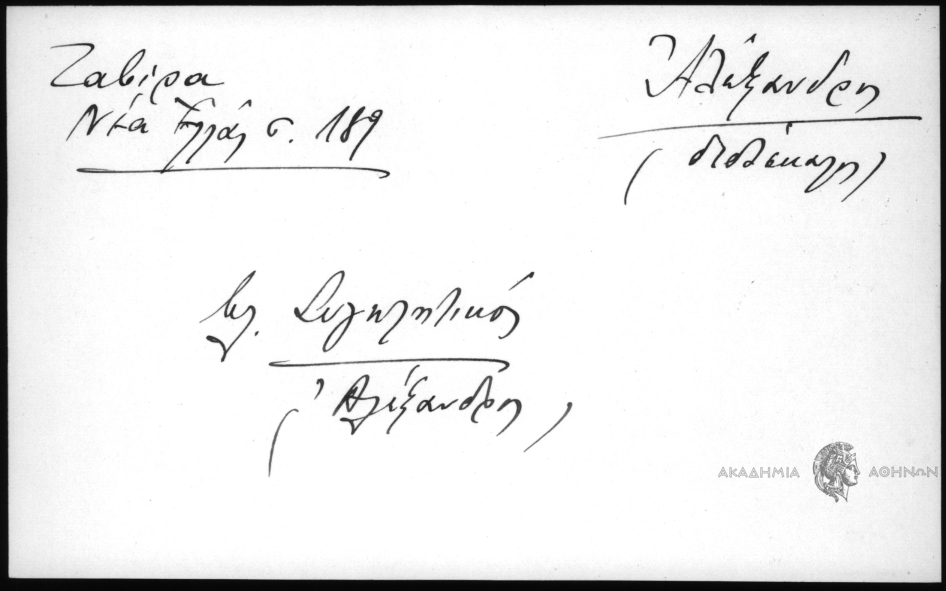 Ζαβίρα
Νέα Ἑλλάς σ. 189
Ἀλέξανδρος
(διδάσκαλος)
βλ. Συγκλητικός
(Ἀλέξανδρος)
ΑΚΑΔΗΜΙΑ ΑΘΗΝΩΝ